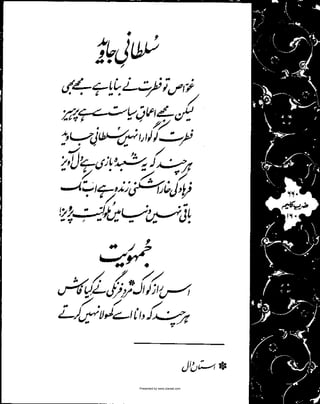 سُلطانیِ جاوید
غوّاص تو فطرت نے بنایا ہے مجھے بھی
لیکن مجھے اعماقِ سیاست سے ہے پرہیز
فطرت کو گوارا نہیں سُلطانیِ جاوید
ہر چند کہ یہ شعبدہ بازی ہے دل آویز
فرہاد کی خارا شکنی زندہ ہے اب تک
باقی نہیں دنیا میں ملوکیّتِ پرویز
جُمہوریت
اس راز کو اک مردِ فرنگی* نے کیا فاش
ہر چند کہ دانا اسے کھولا نہیں کرتے
* استاں دال
Presented by www.ziaraat.com